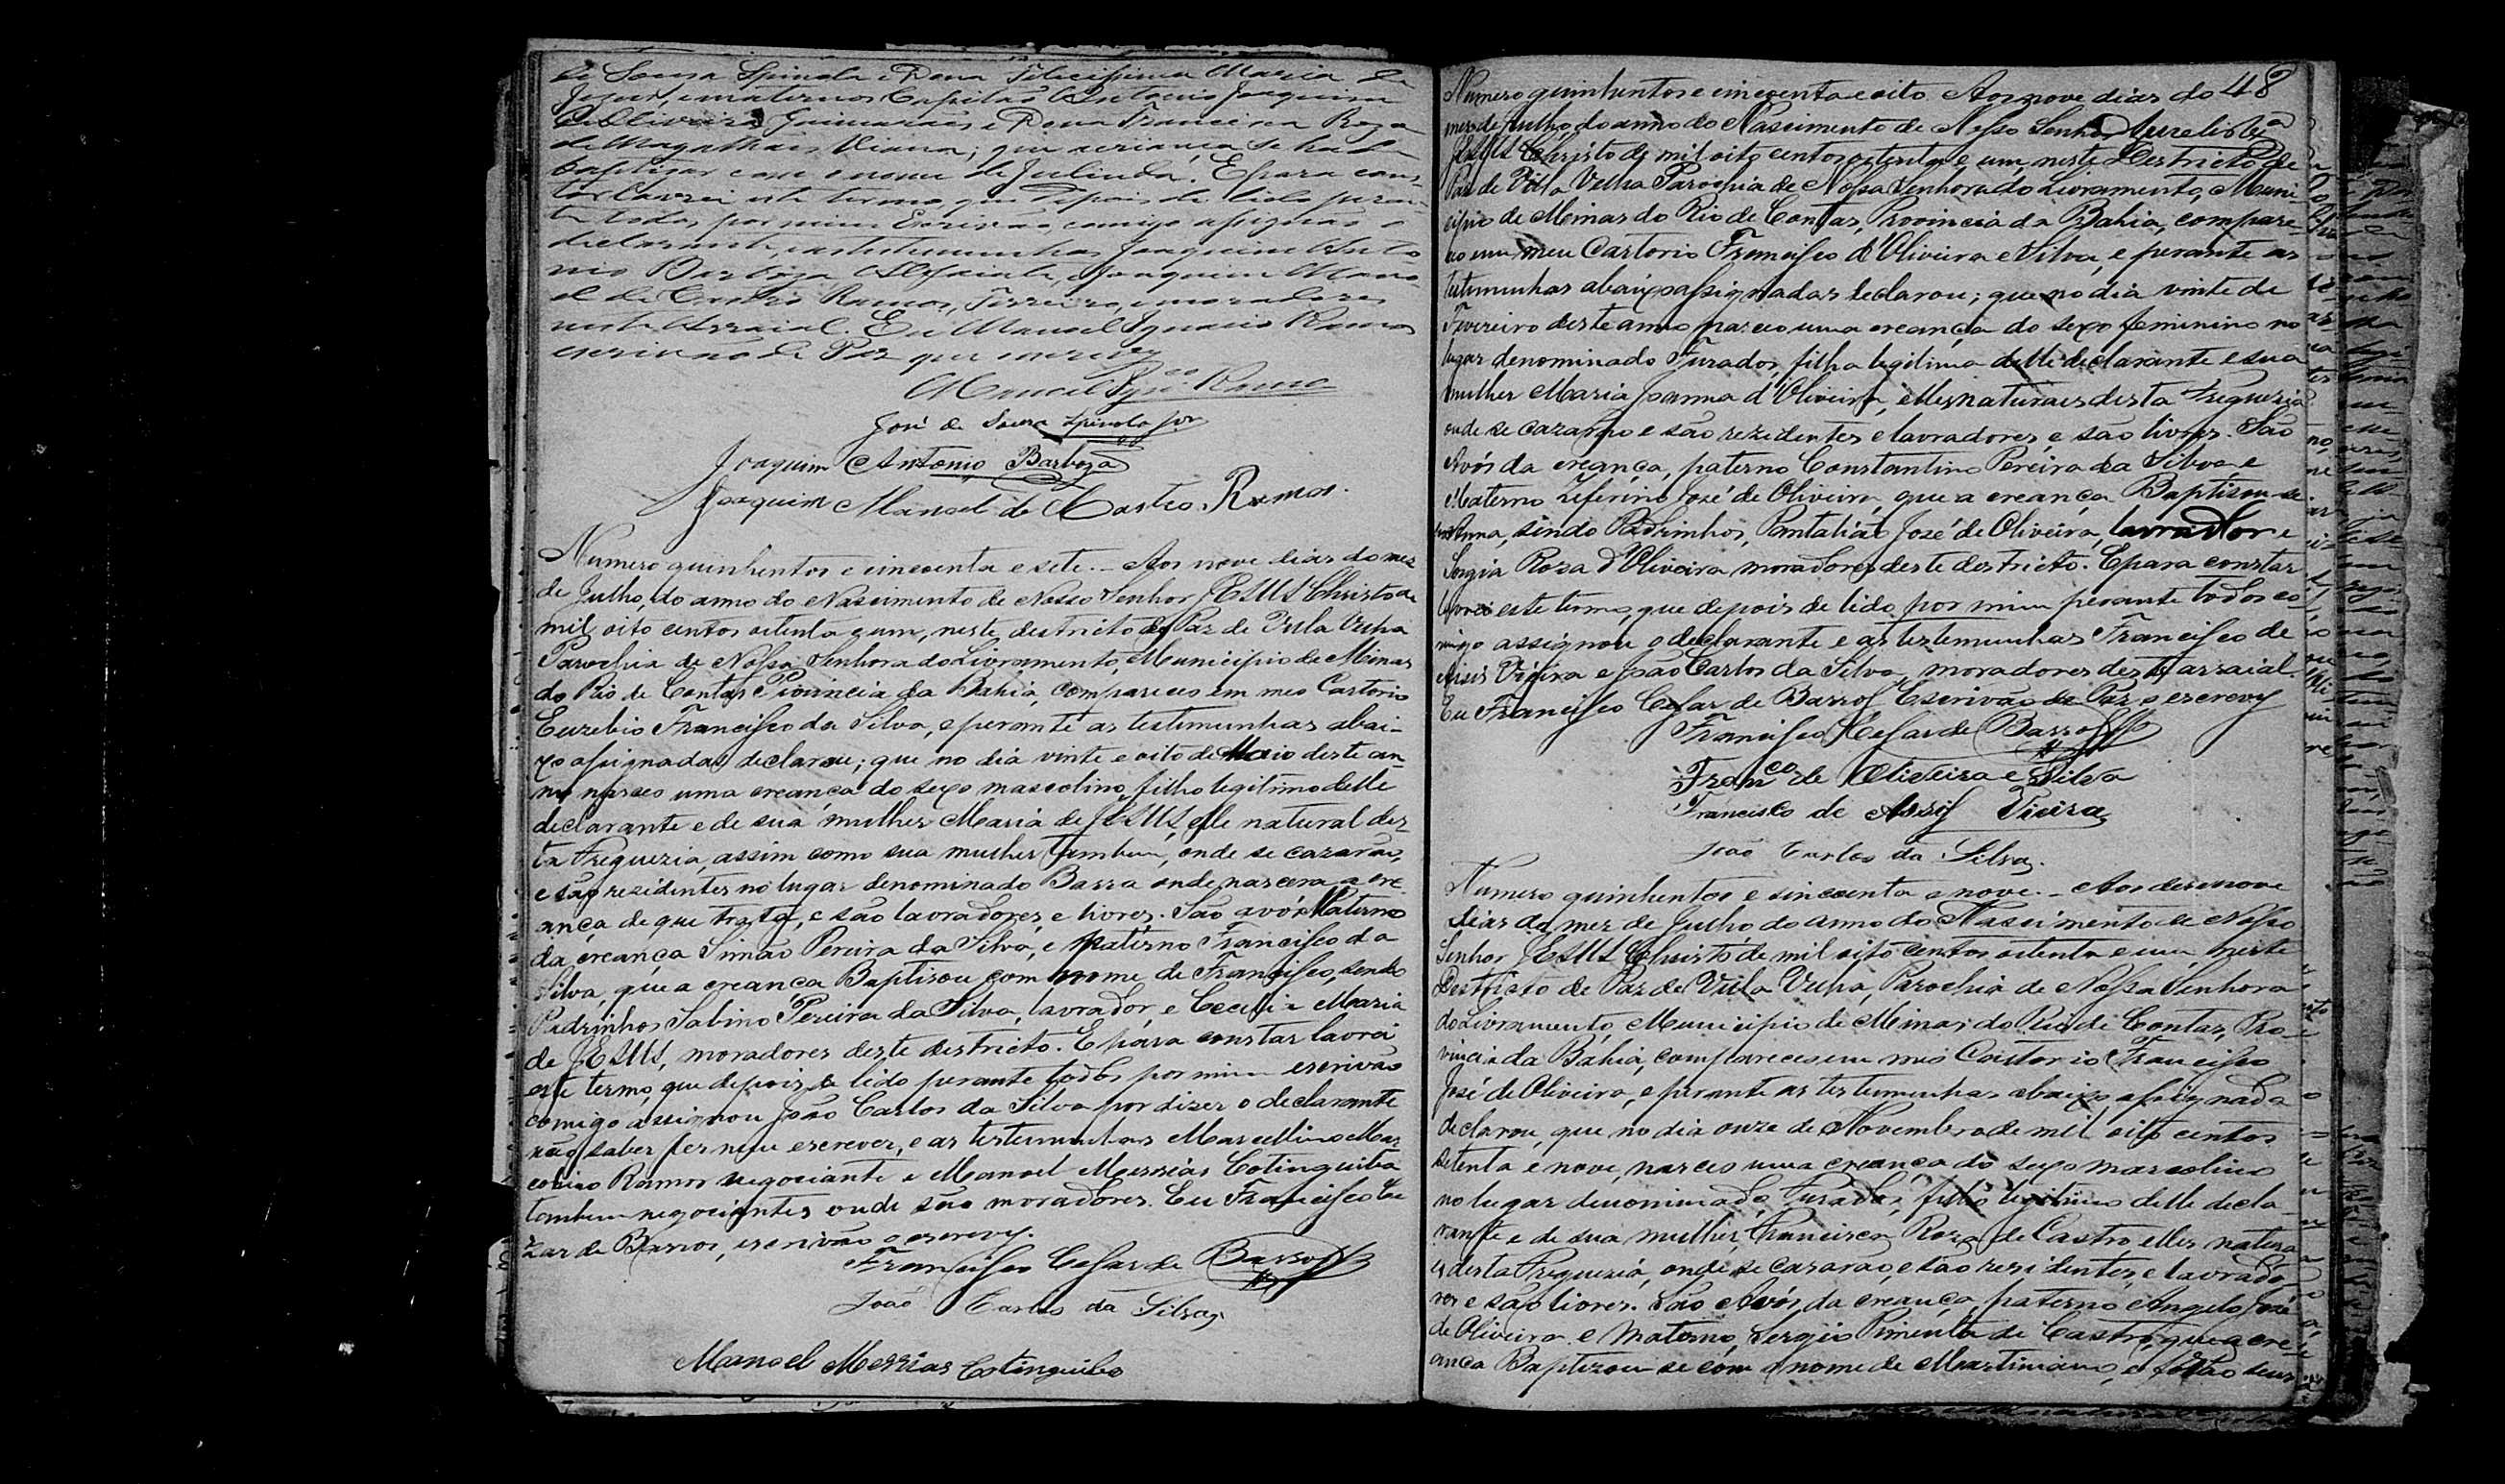 de Souza Spinola e Dona Felicissima Maria de
Jezus, e maternos Capitão Antonio Joaquim
de Oliveira Guimarães e Dona Francisca Roza
de Magalhães Vianna; que a criança se ha de
baptizar com o nome de Julinda. E para cons-
tar lavrei este termo, que depois de lido peran-
te todos por mim Escrivão, comigo assignão o
declarante, e as testemunhas Joaquim Anto
nio Barboza Alfaiate, e Joaquim Mano
el de Castro Ramos, Ferreiro, e moradores
neste Arraial. Eu Manoel Ignacio Ramos
escrivão de Paz que escrevy
Manoel Ignco Ramos
José de Souza Spinola
Joaquim Antonio Barboza
Joaquim Manoel de Castro Ramos.
Numero quinhentos e cincoenta e sete. - Aos nove dias do mez
de Julho, do anno do Nascimento de Nosso Senhor JESUS Christo de
mil oito centos oitenta e um, neste destricto de Paz de Villa Velha
Parochia de Nossa Senhora do Livramento, Municipio de Minas
do Rio de Contas Provincia da Bahia, compareceo em meo Cartorio
Euzebio Francisco da Silva, e perante as testimunhas abai-
xo assignadas declarou; que no dia vinte e oito de Maio deste an-
no nasceo uma creança do sexo mascolino, filho legitimo delle
declarante e de sua mulher Maria de JESUS, elle natural des-
ta Freguezia, assim como sua mulher tambem, onde se cazarão,
e são rezidentes no lugar denominado Barra onde nascera a cre
ança de que trata, e são lavradores, e livres. São avós Materno
da creança Simão Pereira da Silva, e paterno Francisco da
Silva, que a creança Baptisou com nome de Francisco, sendo
Padrinhos Sabino Pereira da Silva, lavrador, e Cecilia Maria
de JESUS, moradores deste destricto. E para constar lavrei
este termo, que depois de lido perante todos por mim escrivão
comigo assignou João Carlos da Silva por dizer o declarante
não saber ler nem escrever, e as testemunhas Marcellino Mar
colino Ramos negociante e Manoel Messias Cotinguiba
tambem negociantes onde são moradores. Eu Francisco Ce
zar de Barros, escrivão o escrevy.
Francisco Cesar de Barros
João Carlos da Silva
Manoel Messias Cotinguiba
48
Numero quinhentos e cincoenta e oito Aos nove dias do
mez de Julho, do anno do Nascimento de Nosso Senhor
JESUS Christo de mil oito centos oitenta e um, neste Destricto de
Paz de Villa Velha Parochia de Nossa Senhora do Livramento, Muni
cipio de Minas do Rio de Contas, Provincia da Bahia, compare-
ceo em meu Cartorio Francisco d'Oliveira e Silva, e perante as
testimunhas abaixo assignadas declarou; que no dia vinte de
Fevereiro deste anno nasceo uma creança do sexo feminino no
lugar denominado Furados, filha legitima delle declarante e sua
mulher Maria Joanna d'Oliveira, elles naturaes desta Freguezia
onde se cazarão e são rezidentes e lavradores, e são livres. São
Avós da creança, paterno Constantino Pereira da Silva e
Materno Zeferino José de Oliveira, que a creança Baptisou-se
Anna, sendo Padrinhos, Pantalião José de Oliveira, lavrador e
Sergia Roza d'Oliveira moradores deste destricto. E para constar
lavrei este termo, que depois de lido por mim perante todos co-
migo assignou o declarante e as testemunhas Francisco de
Assis Vieira e João Carlos da Silva, moradores deste arraial.
Eu Francisco Cesar de Barros Escrivão de Paz o escrevy
Francisco Cesar de Barros
Franco de Oliveira e Silva
Francisco de Assis Vieira
João Carlos da Silva.
Numero quinhentos e sincoenta e nove. - Aos desenove
dias do mez de Julho do anno do Nascimento de Nosso
Senhor JESUS Christo de mil oito centos oitenta e um, neste
Destricto de Paz de Villa Velha, Parochia de Nossa Senhora
do Livramento, Municipio de Minas do Rio de Contas, Pro-
vincia da Bahia, compareceo em meo Cartorio Francisco
José de Oliveira, e perante as testemunhas abaixo assignada
declarou, que no dia onze de Novembro de mil oito centos
setenta e nove, nasceo uma creança do sexo mascolino
no lugar denominado Furados, filho legitimo delle decla-
rante e de sua mulher Francisca Roza de Castro elles natura
es desta Freguezia, onde se casarão, e são residentes, e lavrado-
res e são livres. São Avós da creança, paterno Angelo José
de Oliveira e Materno, Sergio Pimenta de Castro, que a cre-
ança Baptizou-se com o nome de Martiniano, e forão seus